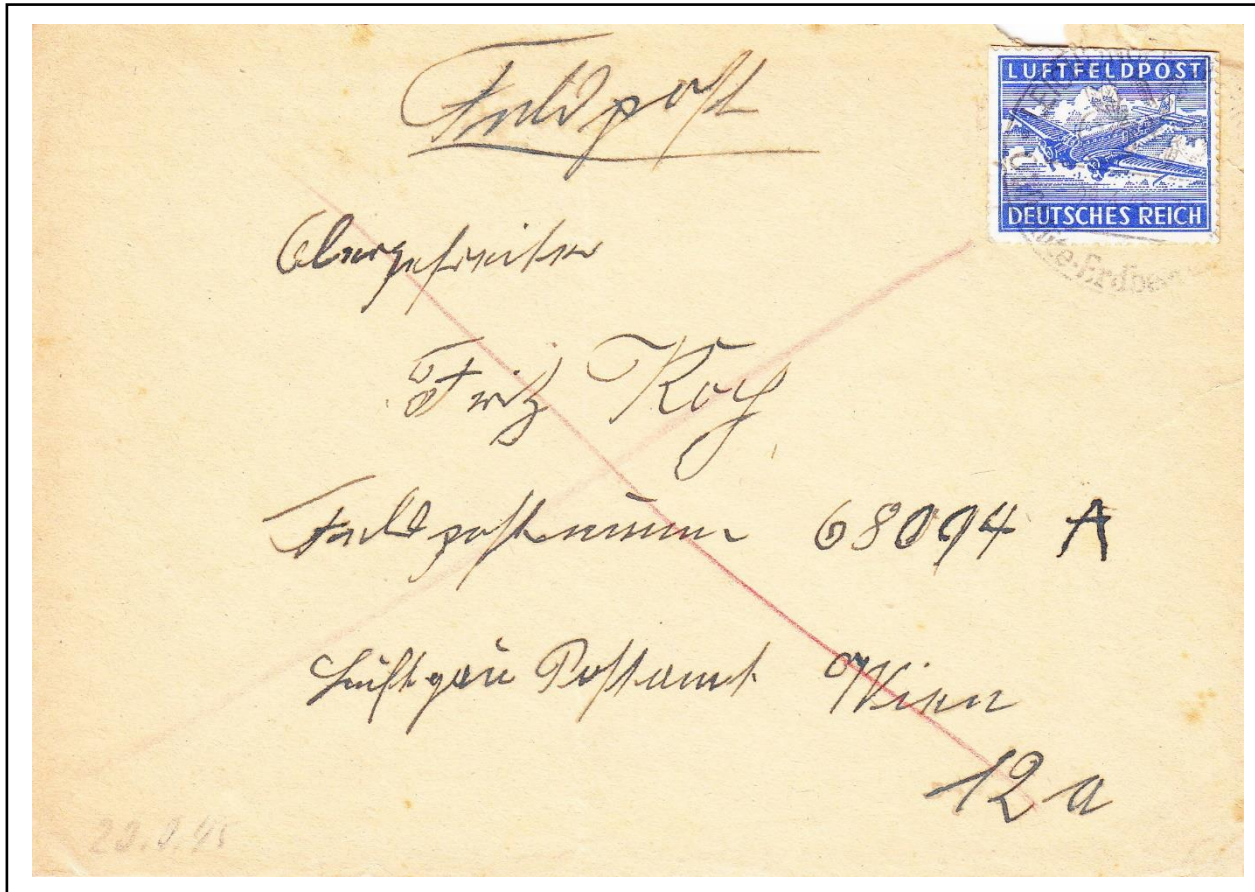 Feldpost
LUFTFELDPOST
DEUTSCHES REICH
Obergefreiter
Fritz Koch
Feldpostnummer 68094 A
Luftgau Postamt Wien
12a